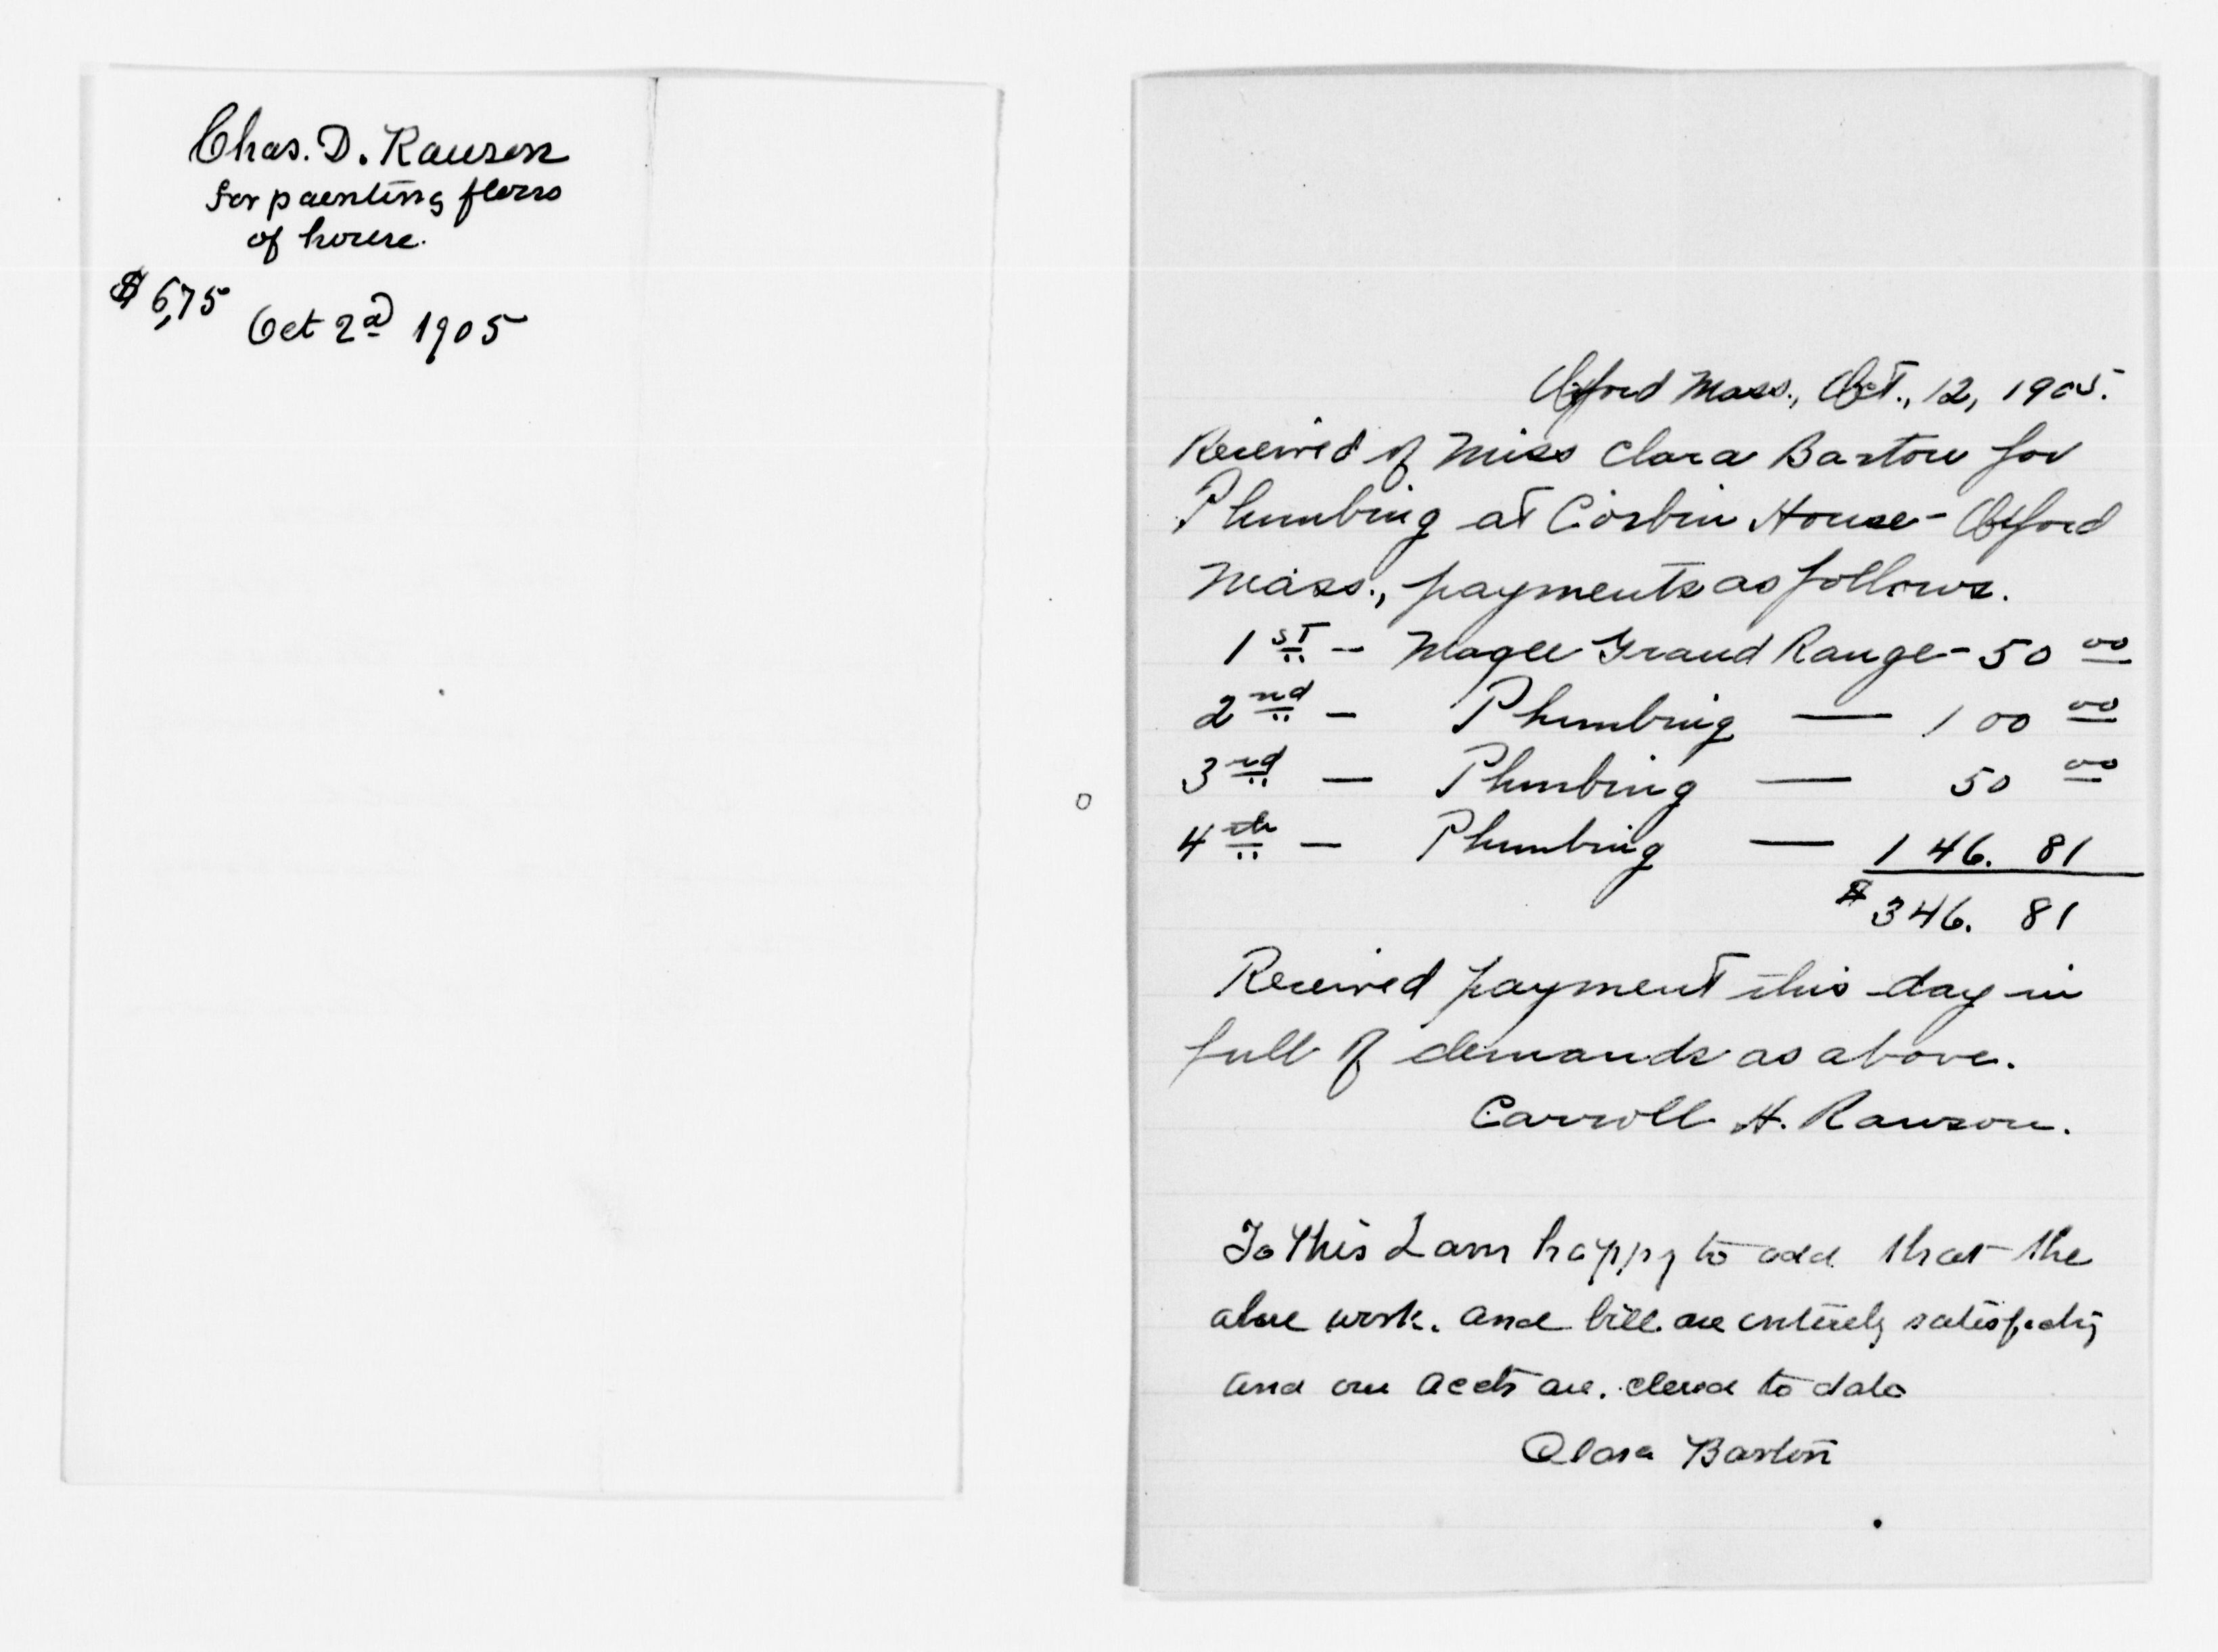 Chas. D. Rawson
for painting floors
of house.
$6,75
Oct 2d 1905
Oxford Mass., Oct., 12, 1905.
Received of Miss Clara Barton for
Plumbing at Corbin House - Oxford
Mass., payments as follows.
1st - Magee Grand Range - 50 00
2nd - Plumbing — 100 00
3rd — Plumbing — 50 00
4th — Plumbing — 146. 81
$346. 81
Received payment this day in
full of demands as above.
Carroll H. Rawson.
To this I am happy to add that the
above work. and bill are entirely satisfactory
and our accts are. closed to date
Clara Barton